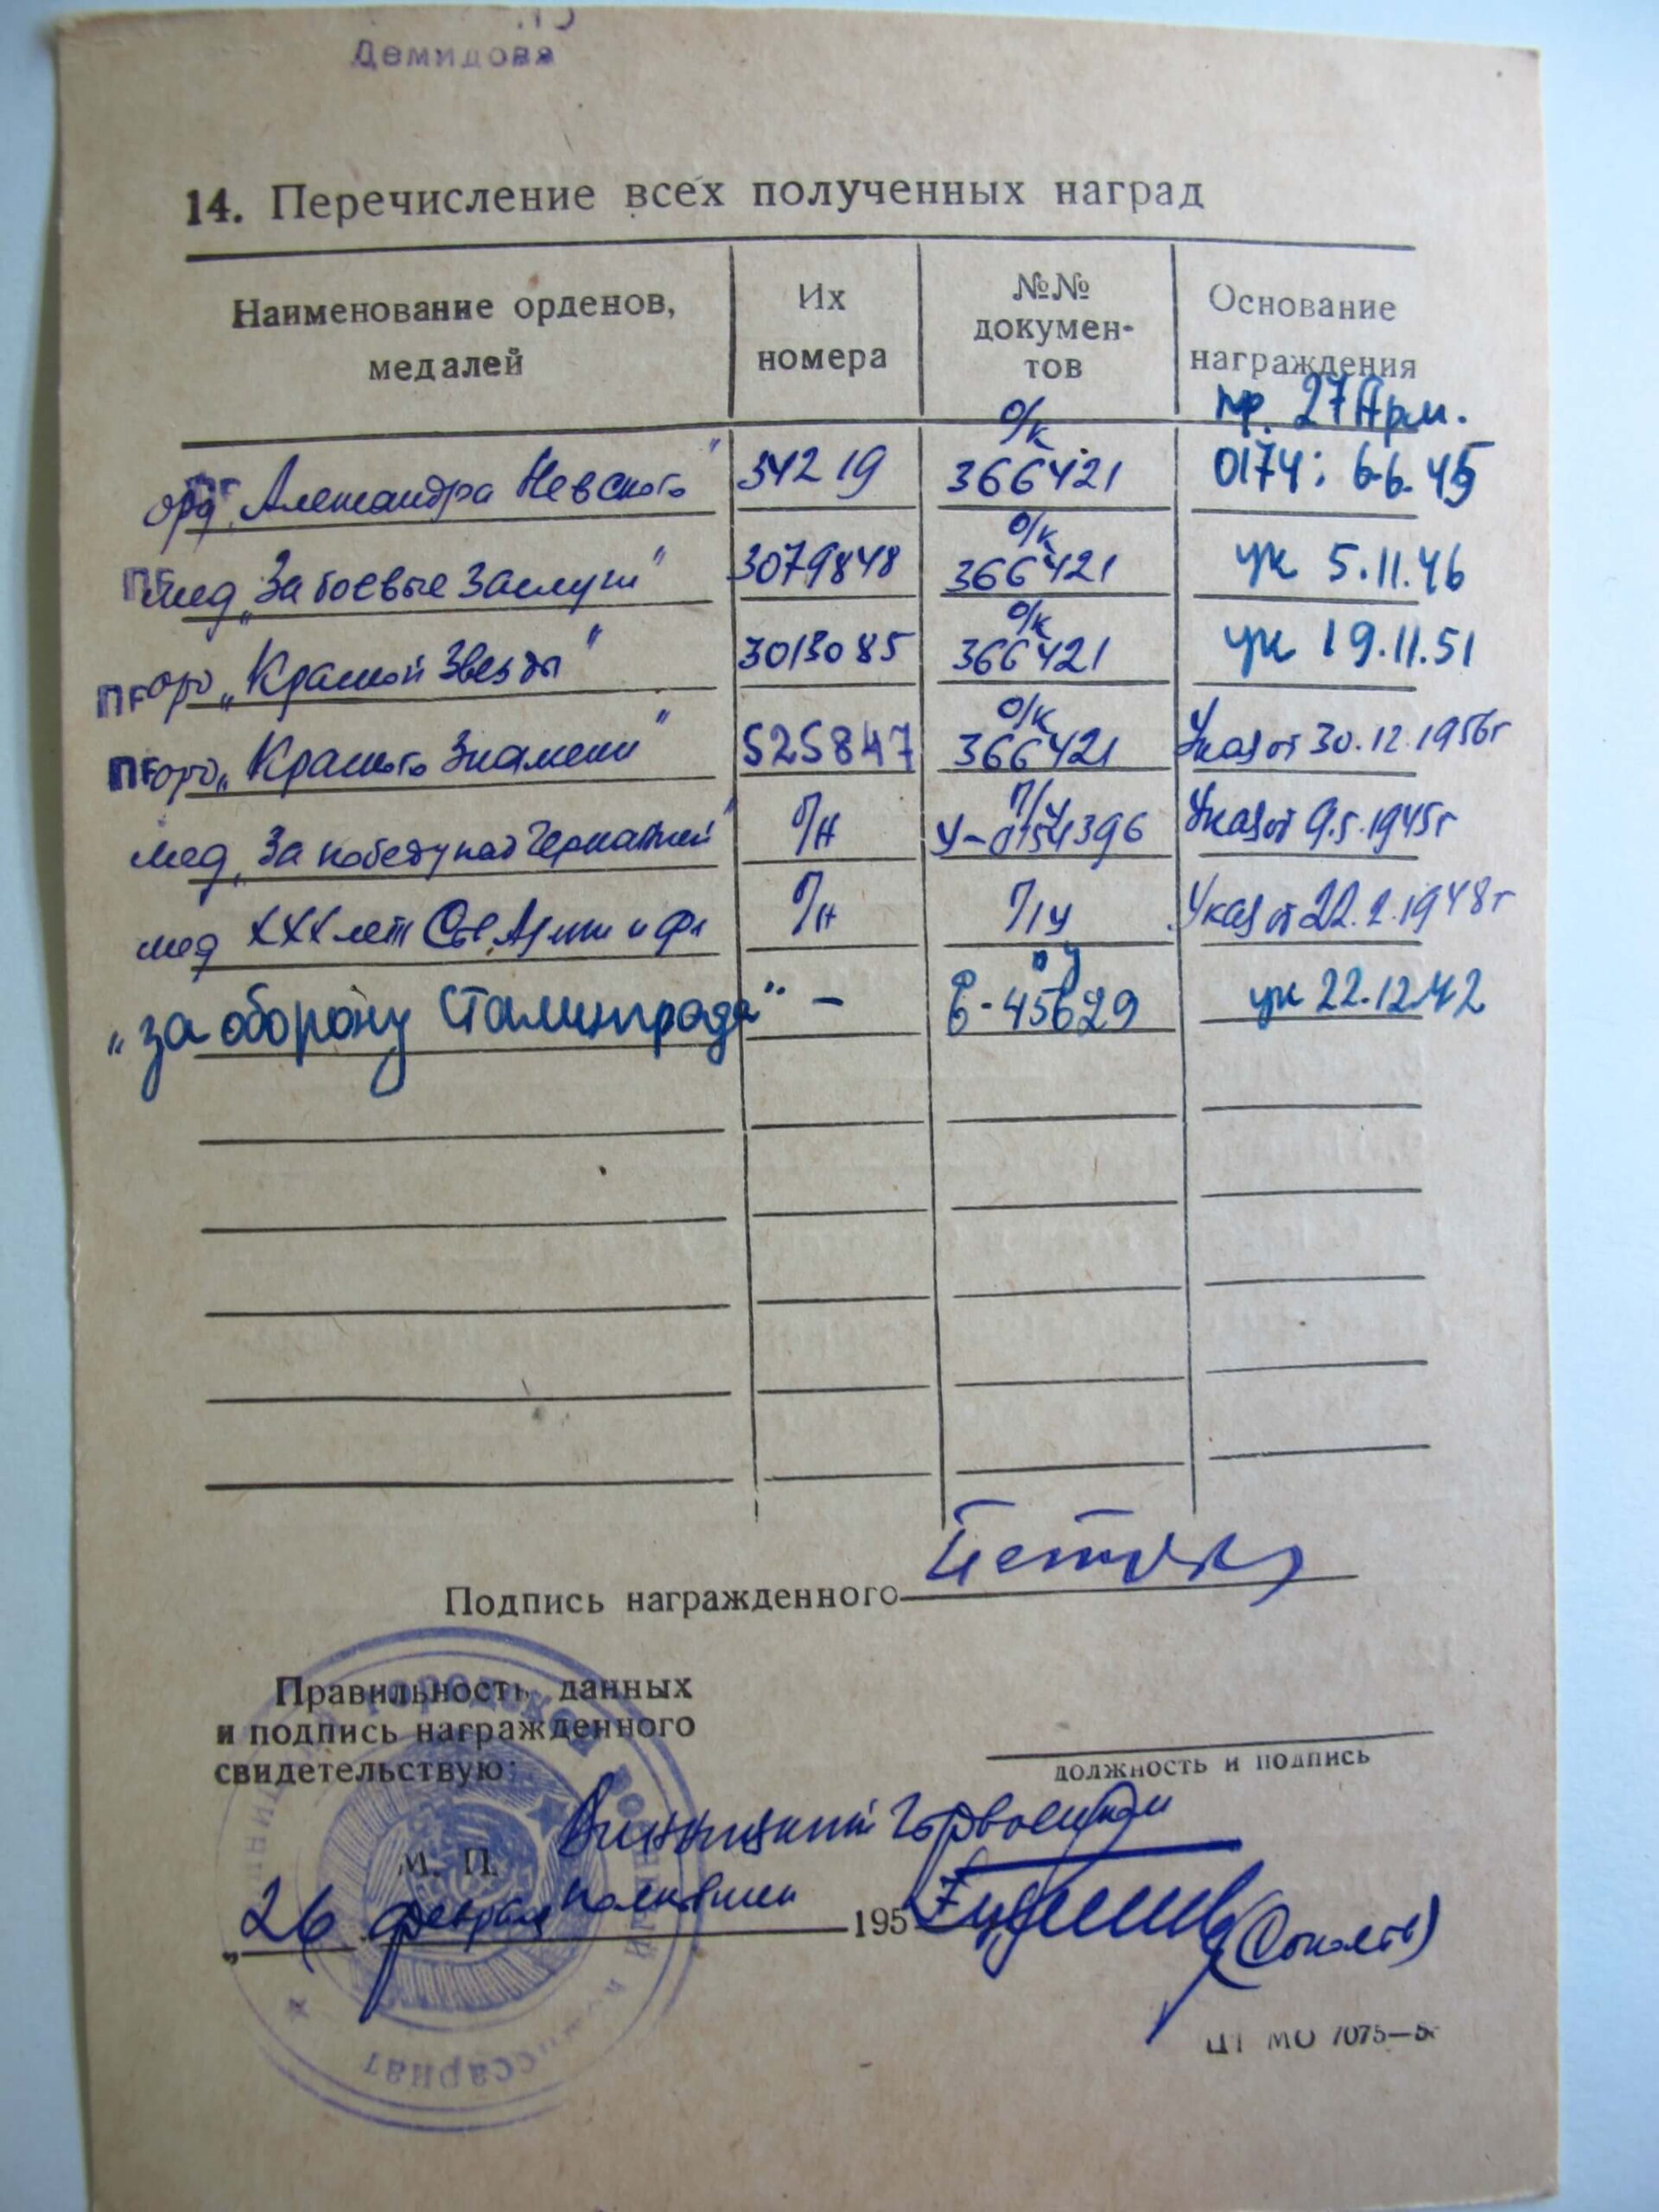 Демидова
14. Перечисление всех полученных наград
Наименование орденов, медалей Их номера №№ докумен- тов Основание награждения
о/к пр. 27 Арм.
орд „Александра Невского" 34219 366421 0174: 6.6.45
о/к
ПГ мед „За боевые заслуги" 3079848 366421 ук 5.11.46
о/к
ПГ орд „Красной Звезды" 3013085 366421 ук 19.11.51
о/к
ПГ орд „Красного Знамени" 525847 366421 Указ от 30.12.1956г
П/у
мед „За победу над Германией" б/н У-0154396 Указ от 9.5.1945г
мед XXX лет Сов. Армии и Фл б/н П/у Указ от 22.2.1948г
„за оборону Сталинграда" - 45629 ук 22.12.42
Подпись награжденного
Правильность данных
и подпись награжденного
свидетельствую:
должность и подпись
Винницкий Горвоенком
М. П.
полковник
„26 февраля 195
ЦТ МО 7075—5